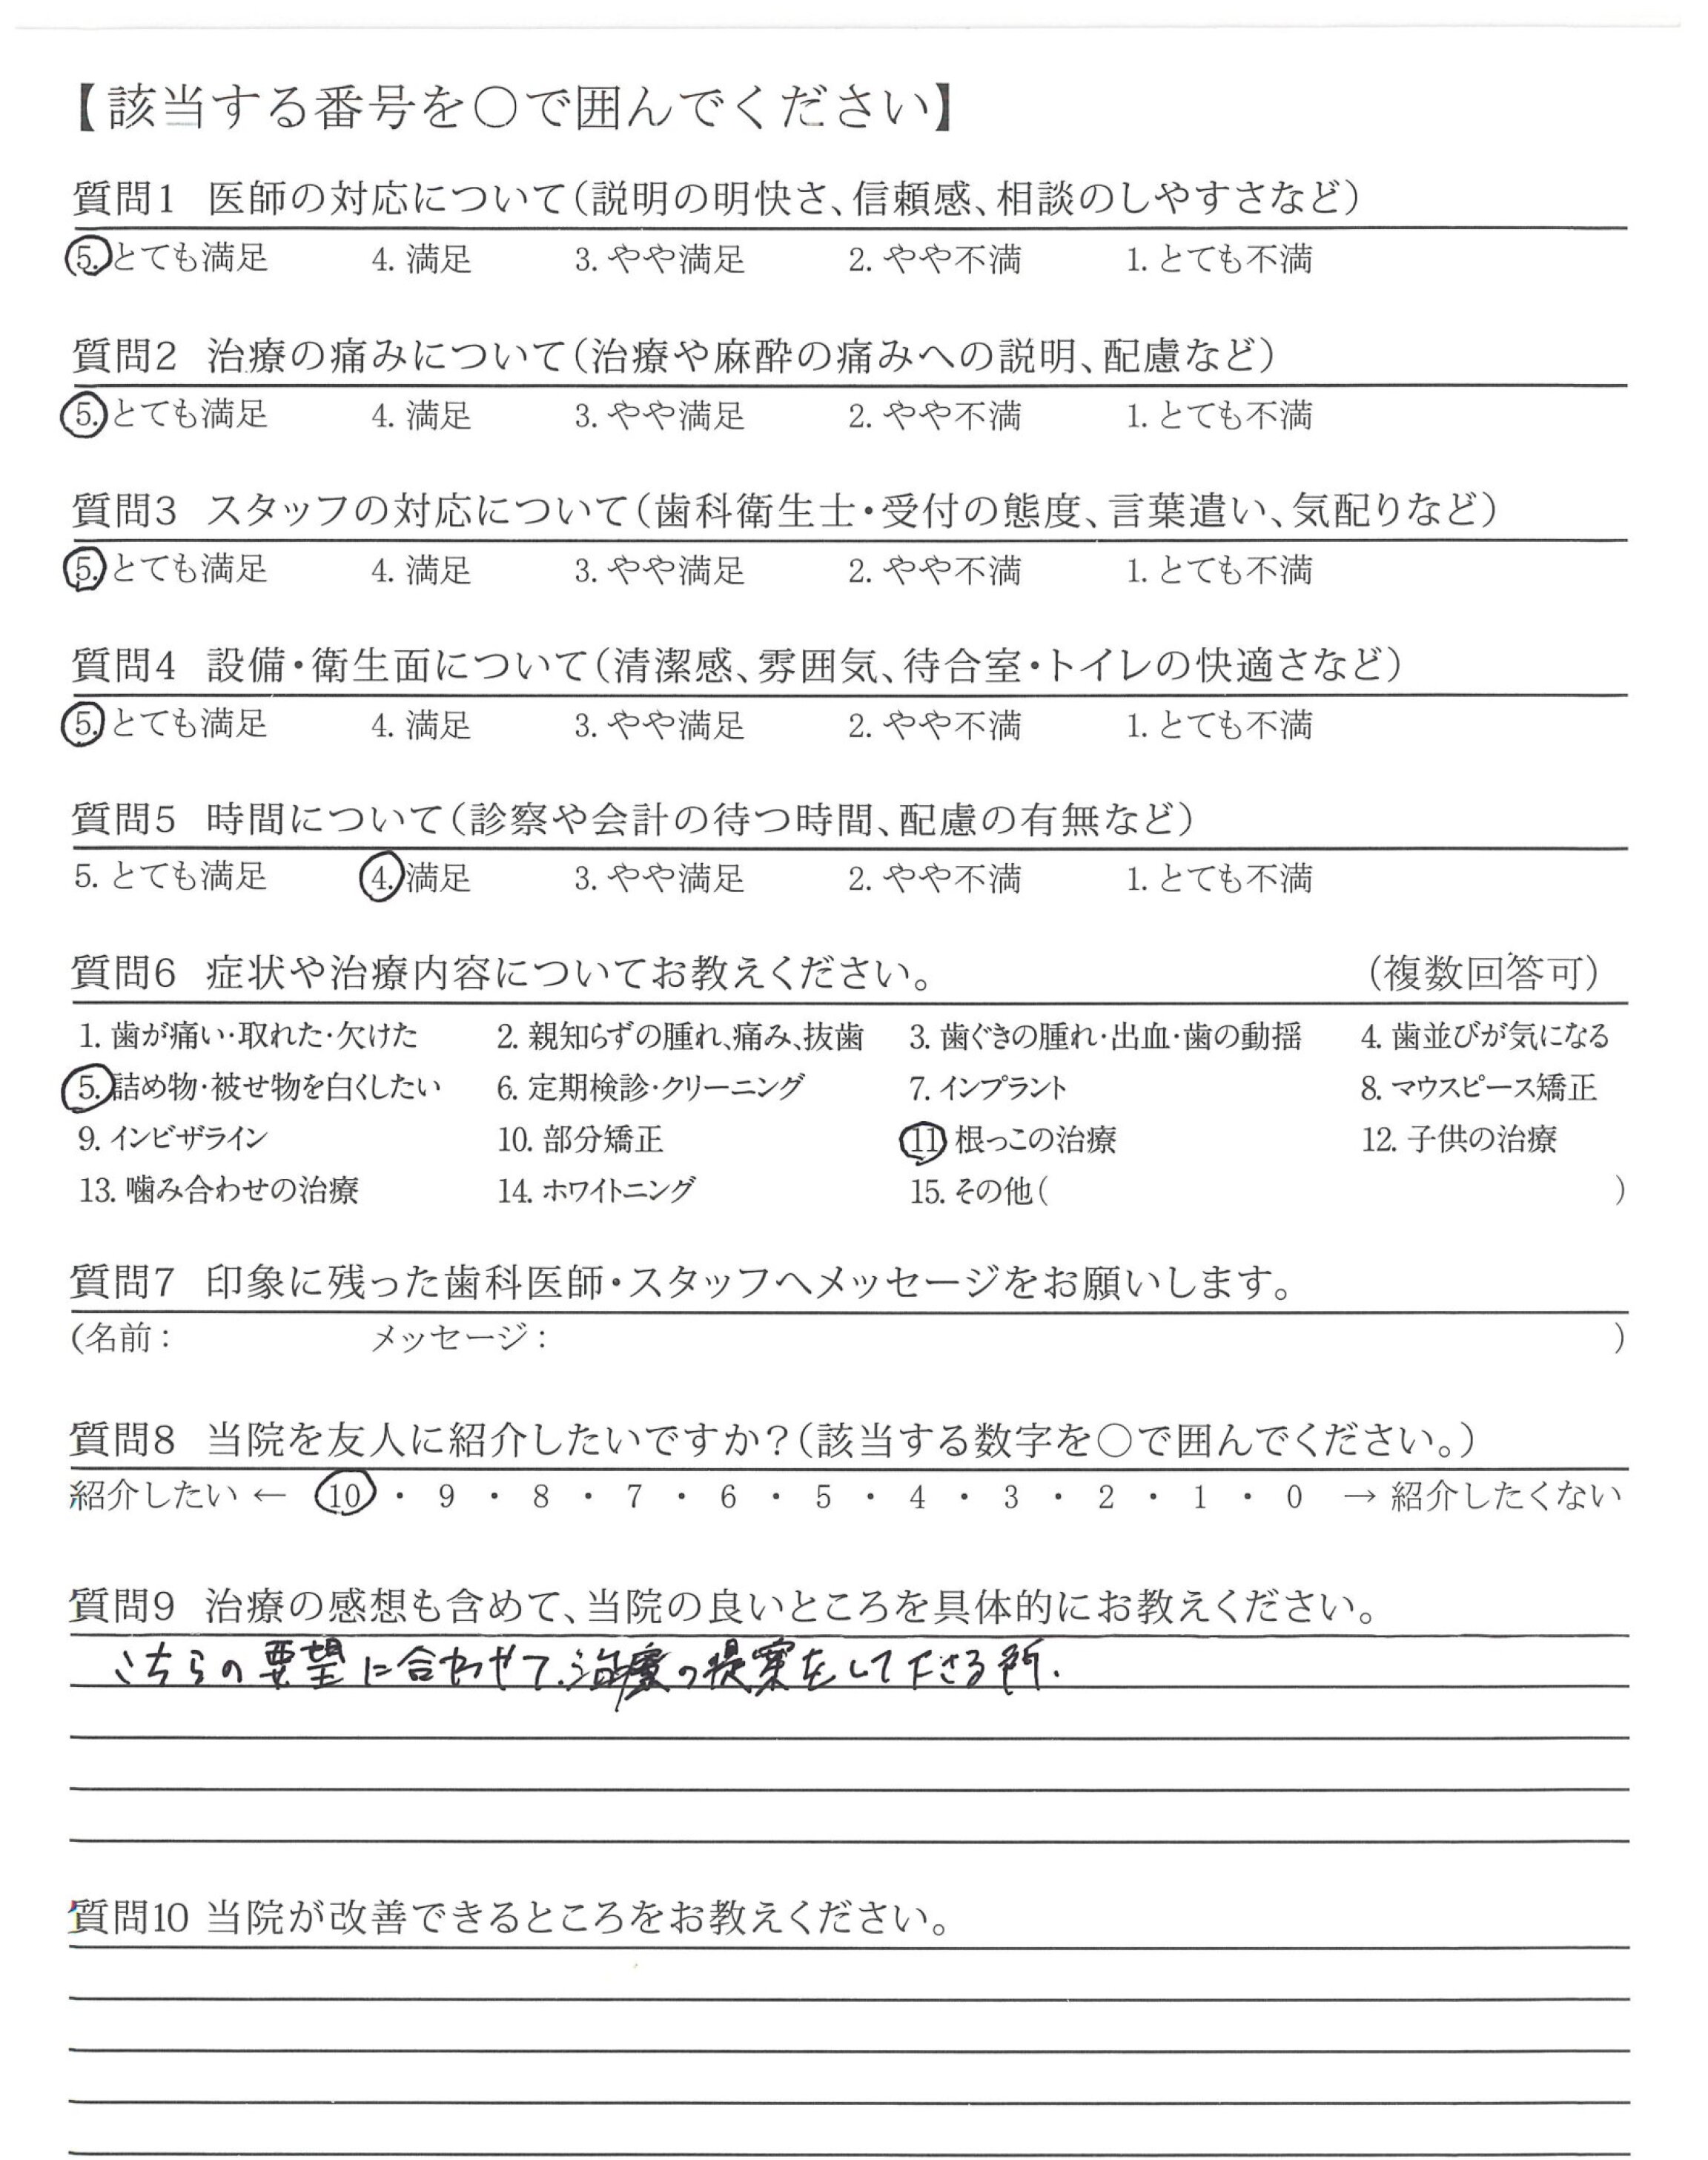 【該当する番号を○で囲んでください】
質問1 医師の対応について（説明の明快さ、信頼感、相談のしやすさなど）
5. とても満足 4. 満足 3. やや満足 2. やや不満 1. とても不満
質問2 治療の痛みについて（治療や麻酔の痛みへの説明、配慮など）
5. とても満足 4. 満足 3. やや満足 2. やや不満 1. とても不満
質問3 スタッフの対応について（歯科衛生士・受付の態度、言葉遣い、気配りなど）
5. とても満足 4. 満足 3. やや満足 2. やや不満 1. とても不満
質問4 設備・衛生面について（清潔感、雰囲気、待合室・トイレの快適さなど）
5. とても満足 4. 満足 3. やや満足 2. やや不満 1. とても不満
質問5 時間について（診察や会計の待つ時間、配慮の有無など）
5. とても満足 4. 満足 3. やや満足 2. やや不満 1. とても不満
質問6 症状や治療内容についてお教えください。 （複数回答可）
1. 歯が痛い・取れた・欠けた 2. 親知らずの腫れ、痛み、抜歯 3. 歯ぐきの腫れ・出血・歯の動揺 4. 歯並びが気になる
5. 詰め物・被せ物を白くしたい 6. 定期検診・クリーニング 7. インプラント 8. マウスピース矯正
9. インビザライン 10. 部分矯正 11 根っこの治療 12. 子供の治療
13. 噛み合わせの治療 14. ホワイトニング 15. その他（ ）
質問7 印象に残った歯科医師・スタッフへメッセージをお願いします。
（名前： メッセージ： ）
質問8 当院を友人に紹介したいですか？（該当する数字を○で囲んでください。）
紹介したい ← 10 ・ 9 ・ 8 ・ 7 ・ 6 ・ 5 ・ 4 ・ 3 ・ 2 ・ 1 ・ 0 → 紹介したくない
質問9 治療の感想も含めて、当院の良いところを具体的にお教えください。
こちらの要望に合わせて、治療の提案をして下さる所.
質問10 当院が改善できるところをお教えください。